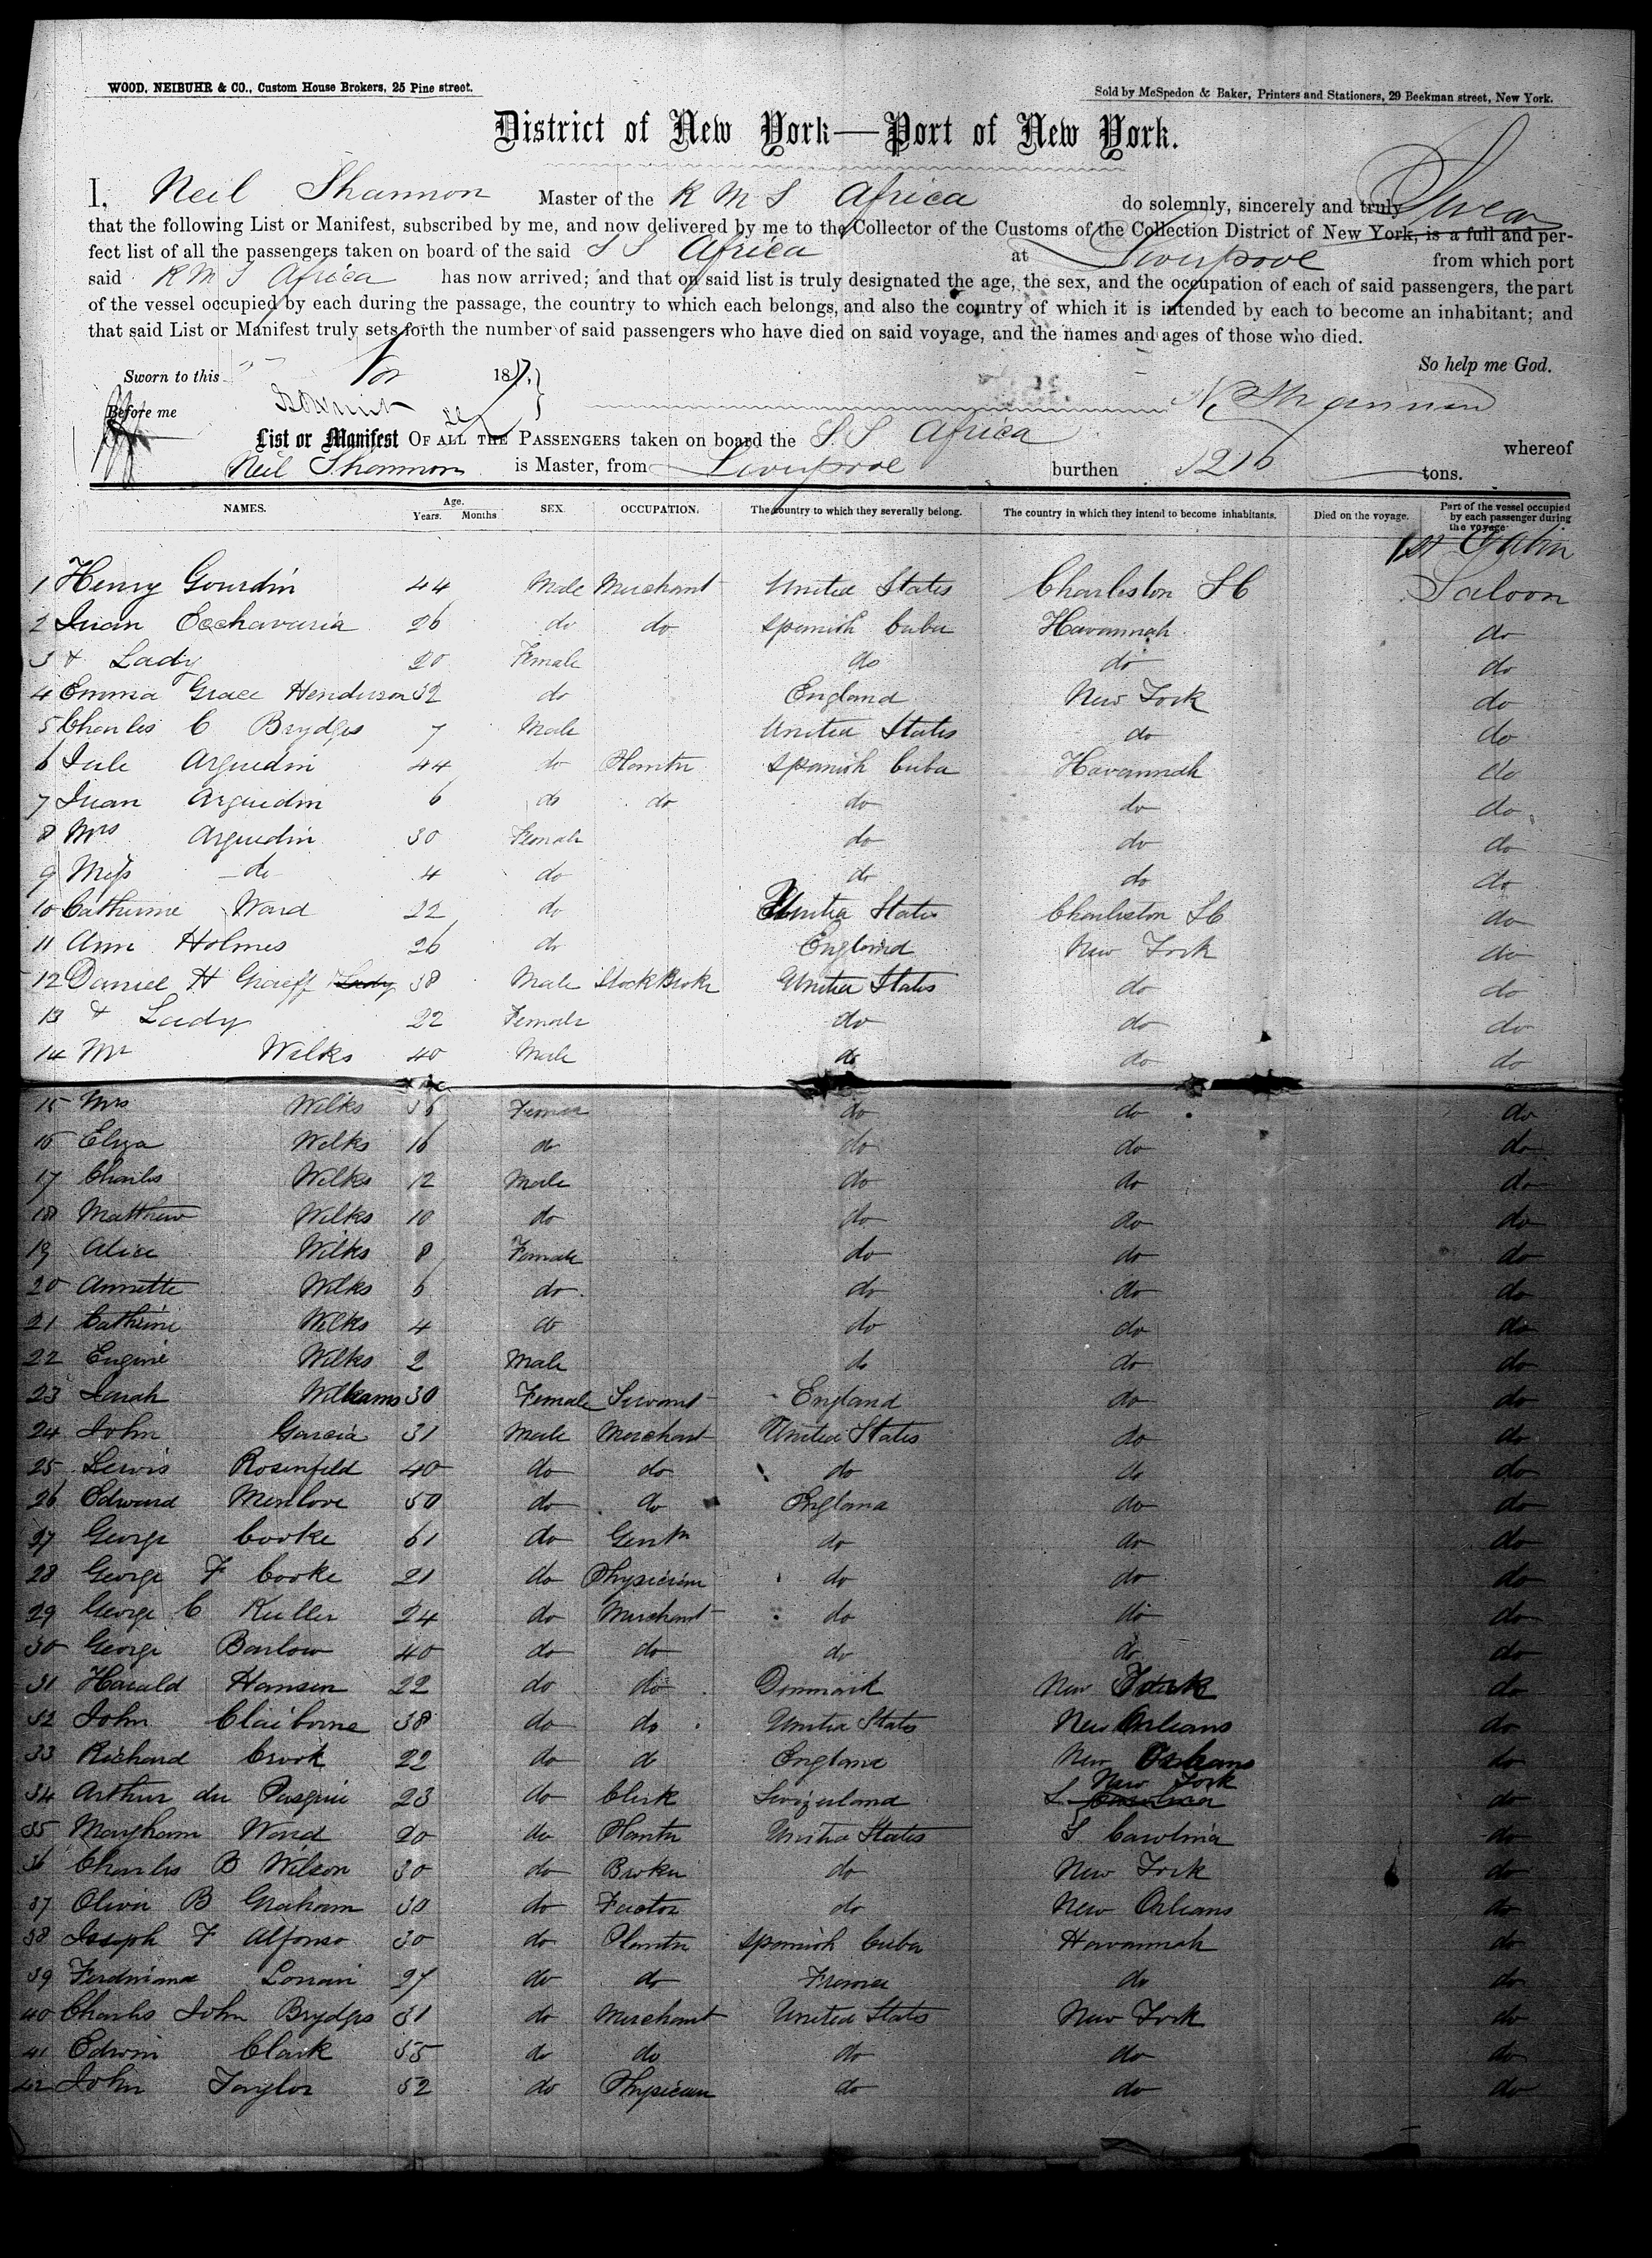 WOOD, NEIBUHR & CO., Custom House Brokers, 25 Pine street.
Sold by McSpedon & Baker, Printers and Stationers, 29 Beekman street, New York.
District of New York—Port of New York.
I, Neil Shannon Master of the R M S Africa do solemnly, sincerely and truly Swear
that the following List or Manifest, subscribed by me, and now delivered by me to the Collector of the Customs of the Collection District of New York, is a full and per-
fect list of all the passengers taken on board of the said S S Africa at Liverpool from which port
said R M S Africa has now arrived; and that on said list is truly designated the age, the sex, and the occupation of each of said passengers, the part
of the vessel occupied by each during the passage, the country to which each belongs, and also the country of which it is intended by each to become an inhabitant; and
that said List or Manifest truly sets forth the number of said passengers who have died on said voyage, and the names and ages of those who died.
So help me God.
Sworn to this Nov 185
Before me N. Shannon
List or Manifest OF ALL THE PASSENGERS taken on board the S.S Africa whereof
Neil Shannon is Master, from Liverpool burthen 1216 tons.
NAMES. Age. Years. Months SEX. OCCUPATION. The country to which they severally belong. The country in which they intend to become inhabitants. Died on the voyage. Part of the vessel occupied by each passenger during the voyage
1st Cabin
1 Henry Gourdin 44 Male Merchant United States Charleston SC Saloon
2 Juan Ecchavaria 26 do do Spanish Cuba Havannah do
3 & Lady 20 Female do do do
4 Emma Grace Henderson 32 do England New York do
5 Charles C Brydges 7 Male United States do do
6 Jule Arguedin 44 do Planter Spanish Cuba Havannah do
7 Juan Arguedin 6 do do do do do
8 Mrs Arguedin 30 Female do do do
9 Miss do 4 do do do do
10 Catherine Ward 22 do United States Charleston SC do
11 Ann Holmes 26 do England New York do
12 Daniel H Graeff & Lady 38 Male Stock Broker United States do do
13 & Lady 22 Female do do do
14 Mr Wilks 40 Male do do do
15 Mrs Wilks 36 Female do do do
16 Eliza Wilks 16 do do do do
17 Charles Wilks 12 Male do do do
18 Matthew Wilks 10 do do do do
19 Alice Wilks 8 Female do do do
20 Annette Wilks 6 do do do do
21 Catherine Wilks 4 do do do do
22 Eugine Wilks 2 Male do do do
23 Sarah Williams 30 Female Servant England do do
24 John Garcia 31 Male Merchant United States do do
25 Lewis Rosenfeld 40 do do do do do
26 Edward Menlove 50 do do England do do
27 George Cooke 61 do Gentn do do do
28 George F Cooke 21 do Physician do do do
29 George C Kuller 24 do Merchant do do do
30 George Barlow 40 do do do do do
31 Harald Hansen 22 do do Denmark New York do
32 John Claiborne 38 do do United States New Orleans do
33 Richard Crook 22 do do England New Orleans do
34 Arthur du Pasquie 23 do Clerk Swizerland S Carolina New York do
35 Maygham Ward 20 do Planter United States S Carolina do
36 Charles B Wilson 30 do Broker do New York do
37 Oliver B Graham 30 do Factor do New Orleans do
38 Joseph F Alfonso 30 do Planter Spanish Cuba Havannah do
39 Ferdinand Lorrain 27 do do France do do
40 Charles John Brydges 31 do Merchant United States New York do
41 Edwin Clark 55 do do do do do
42 John Taylor 52 do Physician do do do